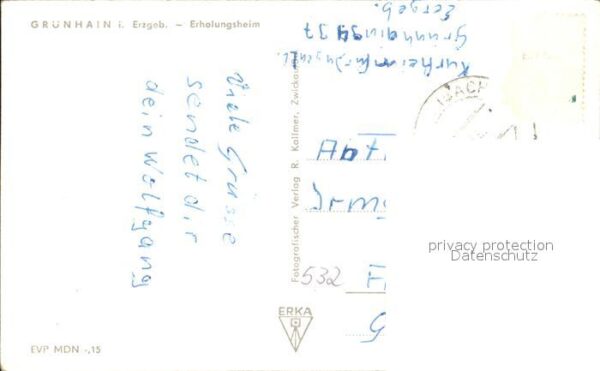 GRÜNHAIN i. Erzgeb. – Erholungsheim
Viele Grüsse
sendet dir
dein Wolfgang
EVP MDN -,15
Fotografischer Verlag R. Kallmer, Zwickau
ERKA
Kurheim für Jugendl.
Grünhain 9437
Erzgeb.
Abt.
Irmg
532
F
G
privacy protection
Datenschutz